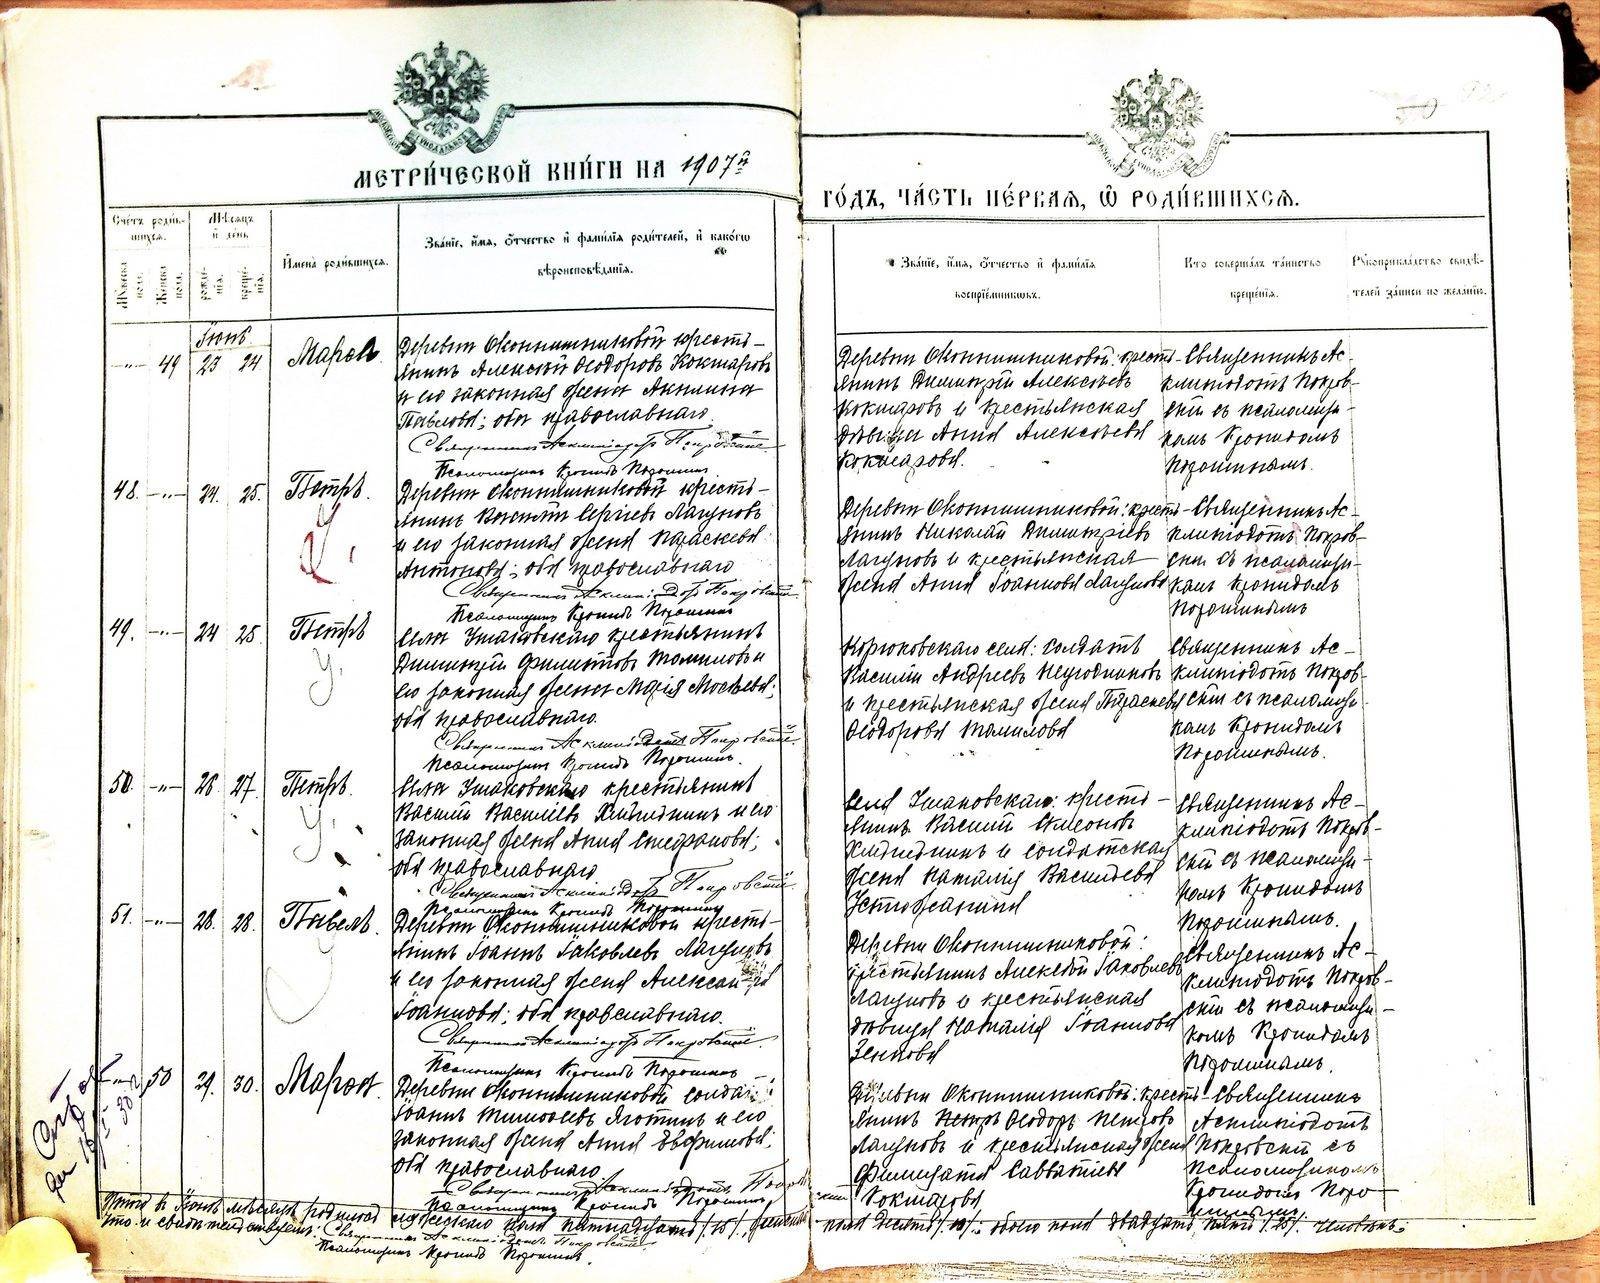 МЕТРИ́ЧЕСКОЙ КНИ́ГИ НА 1907й
ГО́ДЪ, ЧА́СТЬ ПЕ́РВАѦ, Ѡ҆ РОДИ́ВШИХСѦ.
Сче́тъ роди́в-
шихсѧ.
Мѣ́сѧцъ
и҆ де́нь
Имена̀ роди́вшихсѧ.
Зва́нїе, и҆́мѧ, ѻ҆́тчество и҆ фами́лїѧ роди́телей, и҆ како́гѡ
вѣроисповѣ́данїѧ.
Зва́нїе, и҆́мѧ, ѻ҆́тчество и҆ фами́лїѧ
воспрїе́мникѡвъ.
Кто̀ соверша́лъ та́инство
креще́нїѧ.
Рꙋкоприкла́дство свидѣ́-
телей за́писи по жела́нїю.
Мꙋ́жеска
по́ла.
Же́нска
по́ла.
рожде́-
нїѧ.
креще́-
нїѧ.
Іюнь
—„— 49 23 24
Деревни Оконишниковой кресть-
янинъ Алексѣй Ѳеодоровъ Кокшаровъ
и его законная жена Акилина
Павлова; оба православнаго.
Священникъ Асклипіодотъ Покровскій
Псаломщикъ Кронидъ Порошинъ.
Деревни Оконишниковой: кресть-
янинъ Димитрій Алексѣевъ
Кокшаровъ и крестьянская
дѣвица Анна Алексѣева
Кокшарова.
Священникъ Ас-
клипіодотъ Покров-
скій съ псаломщи-
комъ Кронидомъ
Порошинымъ.
48. —„— 24. 25. Петръ.
Деревни Оконишниковой кресть-
янинъ Сергіевъ Лагуновъ
и его законная жена Параскева
Антонова; оба православнаго
Священникъ Асклипіодотъ Покровскій
Псаломщикъ Кронидъ Порошинъ
Деревни Оконишниковой: кресть-
янинъ Николай Димитріевъ
Лагуновъ и крестьянская
жена Анна Іоаннова Лагунова
Священникъ Ас-
клипіодотъ Покров-
скій съ псаломщи-
комъ Кронидомъ
Порошинымъ
49. —„— 24 25. Петръ
Села Ушаковскаго крестьянинъ
Димитрій Томиловъ и
его законная жена Марія;
оба православнаго.
Священникъ Асклипіодотъ Покровскій.
Псаломщикъ Кронидъ Порошинъ.
села: солдатъ
Василій Андреевъ
и крестьянская жена Параскева
Ѳеодорова Томилова
Священникъ Ас-
клипіодотъ Покров-
скій съ псаломщи-
комъ Кронидомъ
Порошинымъ.
50. —„— 26 27. Петръ.
Села Ушаковскаго крестьянинъ
Василій Василіевъ и его
законная жена Анна Стефанова;
оба православнаго
Священникъ Асклипіодотъ Покровскій.
Псаломщикъ Кронидъ Порошинъ
Села Ушаковскаго: кресть-
янинъ Василій Симеоновъ
и солдатская
жена Наталія Васильева
Устюжанина
Священникъ Ас-
клипіодотъ Покров-
скій съ псаломщи-
комъ Кронидомъ
Порошинымъ.
51. —„— 28. 28. Павелъ.
Деревни Оконишниковой кресть-
янинъ Іоаннъ Іаковлевъ Лагуновъ
и его законная жена Александра
Іоаннова; оба православнаго.
Священникъ Асклипіодотъ Покровскій.
Псаломщикъ Кронидъ Порошинъ
Деревни Оконишниковой:
крестьянинъ Алексѣй Іаковлевъ
Лагуновъ и крестьянская
дѣвица Наталія Іоаннова
Зенкова
Священникъ Ас-
клипіодотъ Покров-
скій съ псаломщи-
комъ Кронидомъ
Порошинымъ.
—„— 50 29. 30.
Деревни Оконишниковой солдатъ
Іоаннъ Тимоѳеевъ и его
законная жена Анна Евфимова;
оба православнаго
Священникъ Асклипіодотъ Покровскій
Псаломщикъ Кронидъ Порошинъ
Деревни Оконишниковой: кресть-
янинъ Ѳеодоръ Петровъ
Лагуновъ и крестьянская жена
Савватіева
Кокшарова
Священникъ
Асклипіодотъ
Покровскій съ
псаломщикомъ
Кронидомъ Поро-
шинымъ.
Итого въ Іюнѣ мѣсяцѣ родилось мужескаго пола пятнадцать /15/, женска
пола десять /10/: обоего пола двадцать пять /25/ человѣкъ.
Священникъ Асклипіодотъ Покровскій
Псаломщикъ Кронидъ Порошинъ.